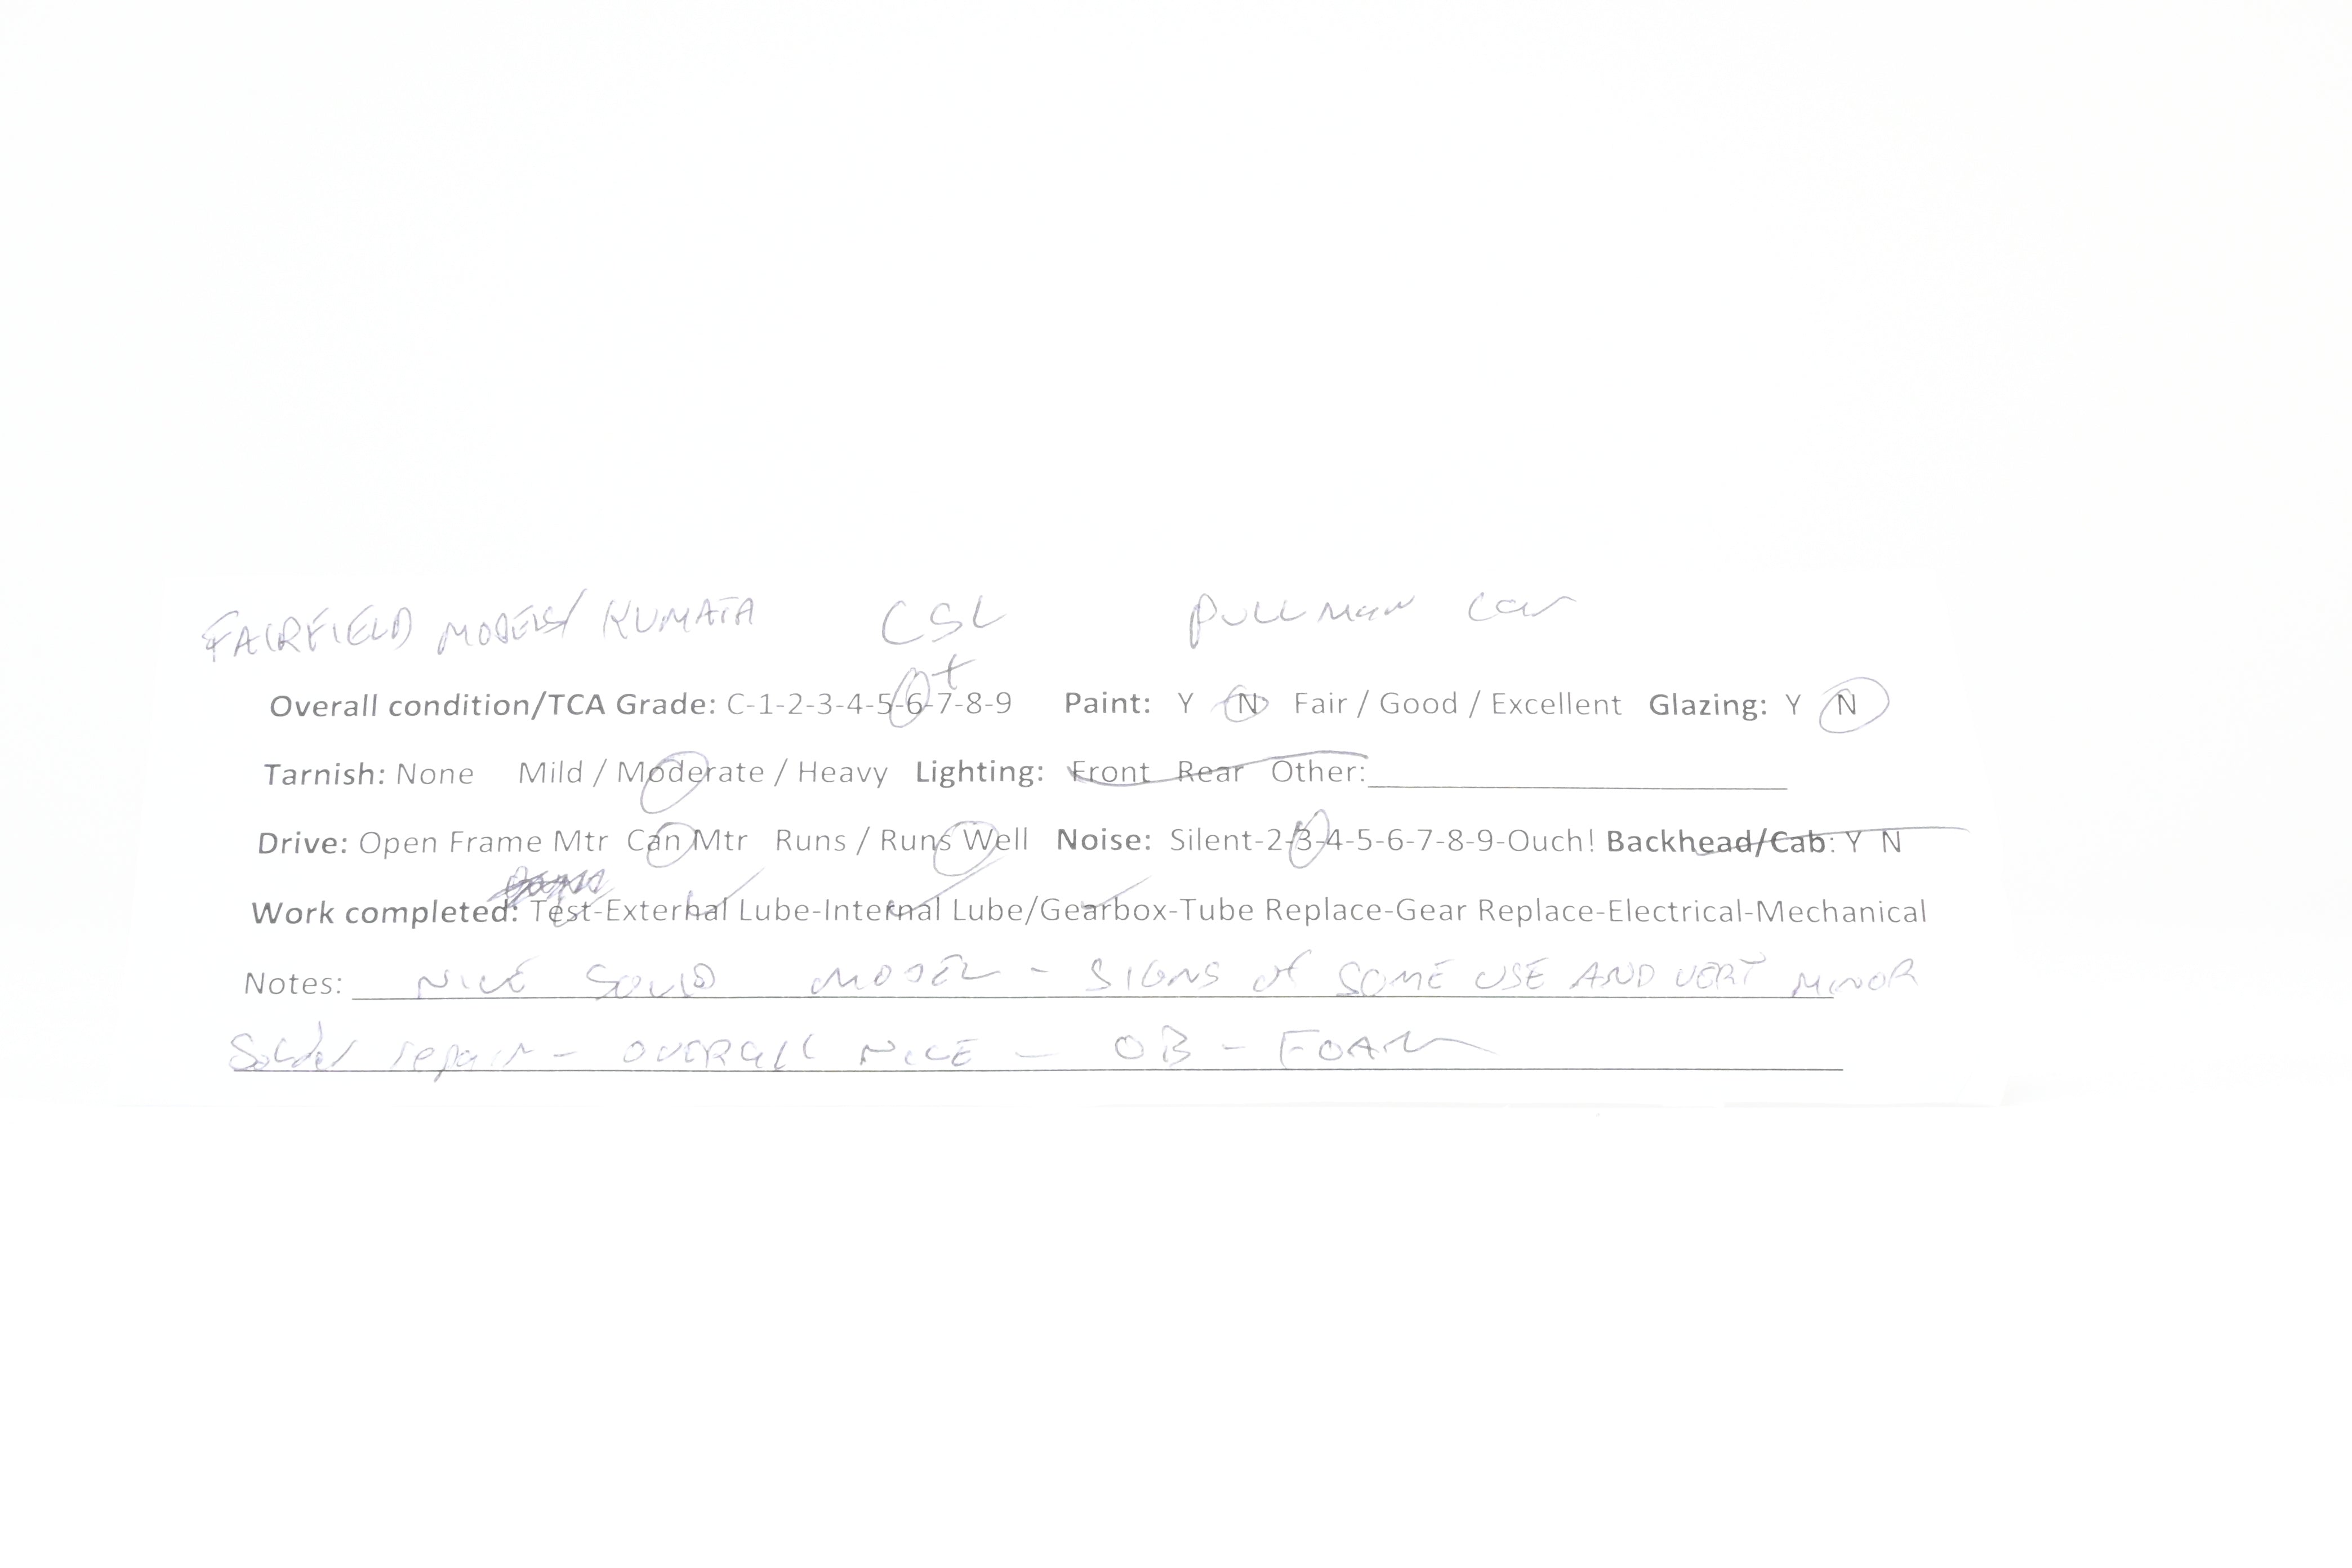 FAIRFIELD MODELS/ KUMATA CSL PULLMAN Car
Overall condition/TCA Grade: C-1-2-3-4-5-6+-7-8-9 Paint: Y N Fair / Good / Excellent Glazing: Y N
Tarnish: None Mild / Moderate / Heavy Lighting: Front Rear Other:
Drive: Open Frame Mtr Can Mtr Runs / Runs Well Noise: Silent-2-3-4-5-6-7-8-9-Ouch! Backhead/Cab: Y N
Work completed: Test-External Lube-Internal Lube/Gearbox-Tube Replace-Gear Replace-Electrical-Mechanical
Notes: NICE SOLID MODEL - SIGNS of SOME USE AND VERY MINOR
Solder repair - OVERALL NICE - OB - FOAM